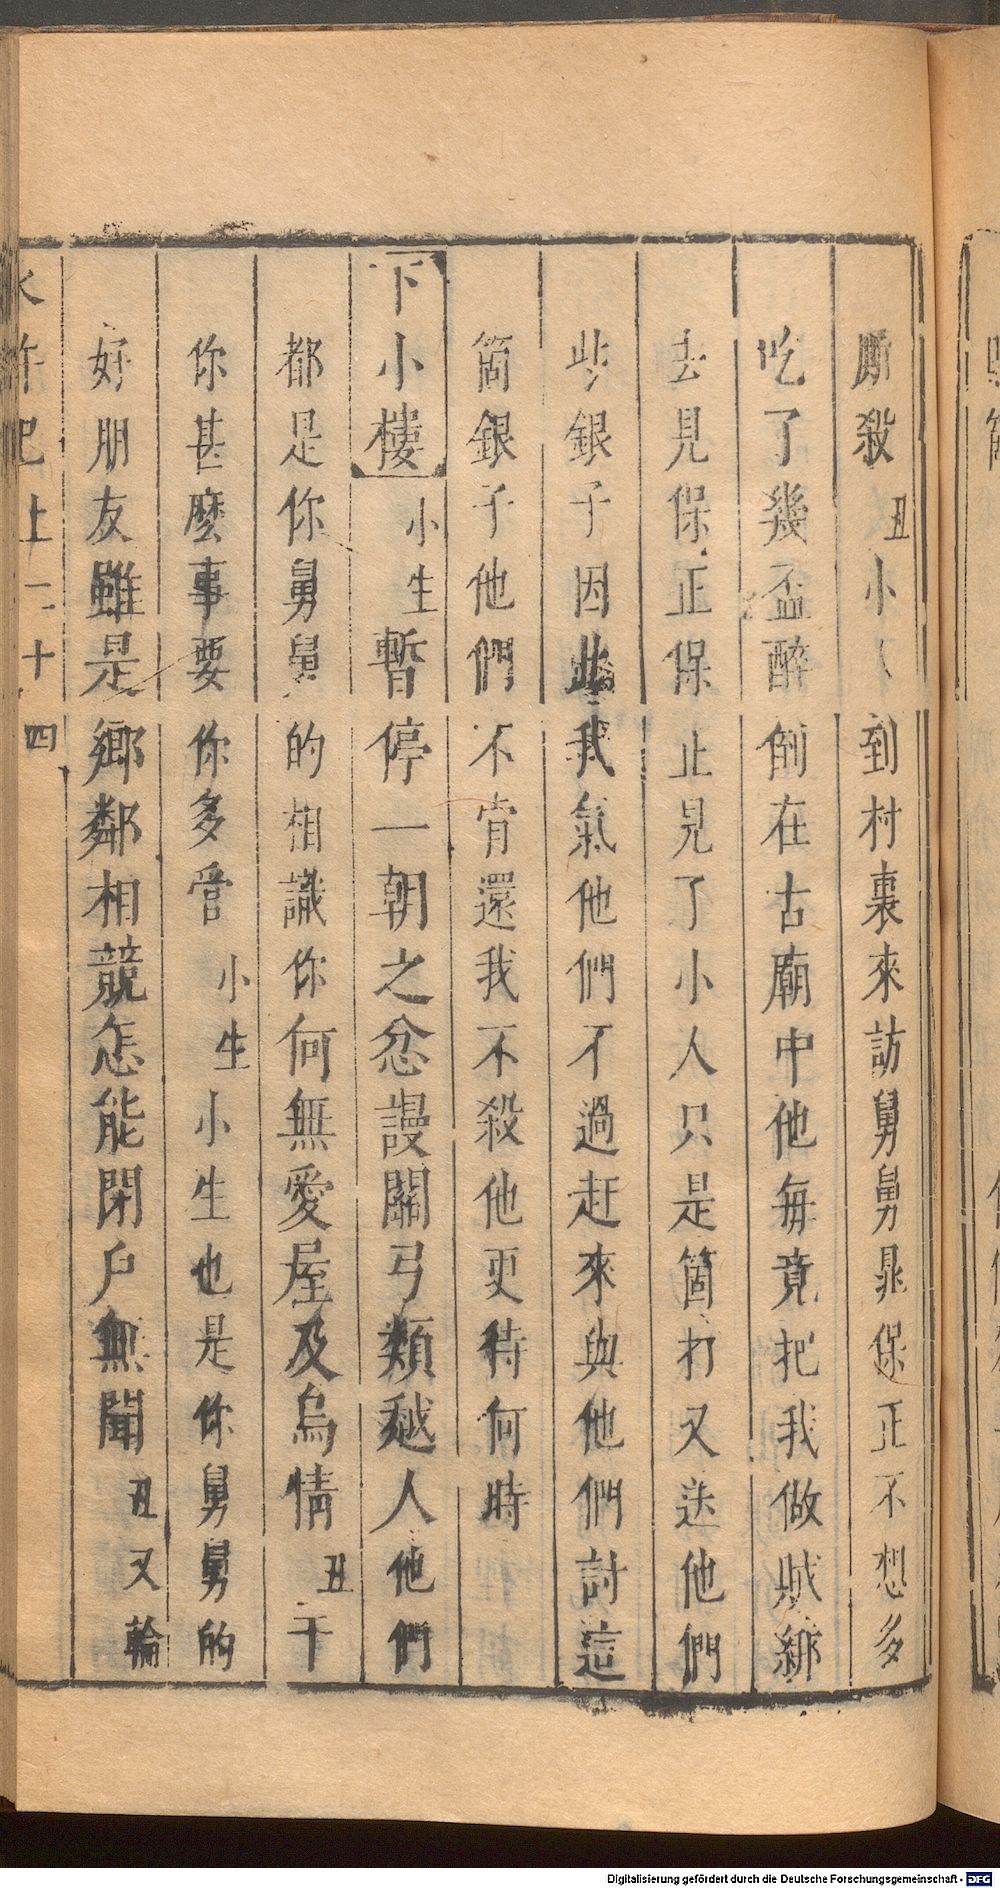 厮殺丑小人到村裏來訪舅舅晁保正不想多
吃了幾盃醉倒在古廟中他每竟把我做賊綁
去見保正保正見了小人只是箇打又送他們
些銀子因此我氣他們不過赶來與他們討這
箇銀子他們不肯還我不殺他更待何時
下小樓小生暫停一朝之忿謾關弓類越人他們
都是你舅舅的相識你何無愛屋及烏情丑干
你甚麽事要你多管小生小生也是你舅舅的
好朋友雖是鄉鄰相競怎能閉戶無聞丑又輪
水滸記上二十四
Digitalisierung gefördert durch die Deutsche Forschungsgemeinschaft - DFG